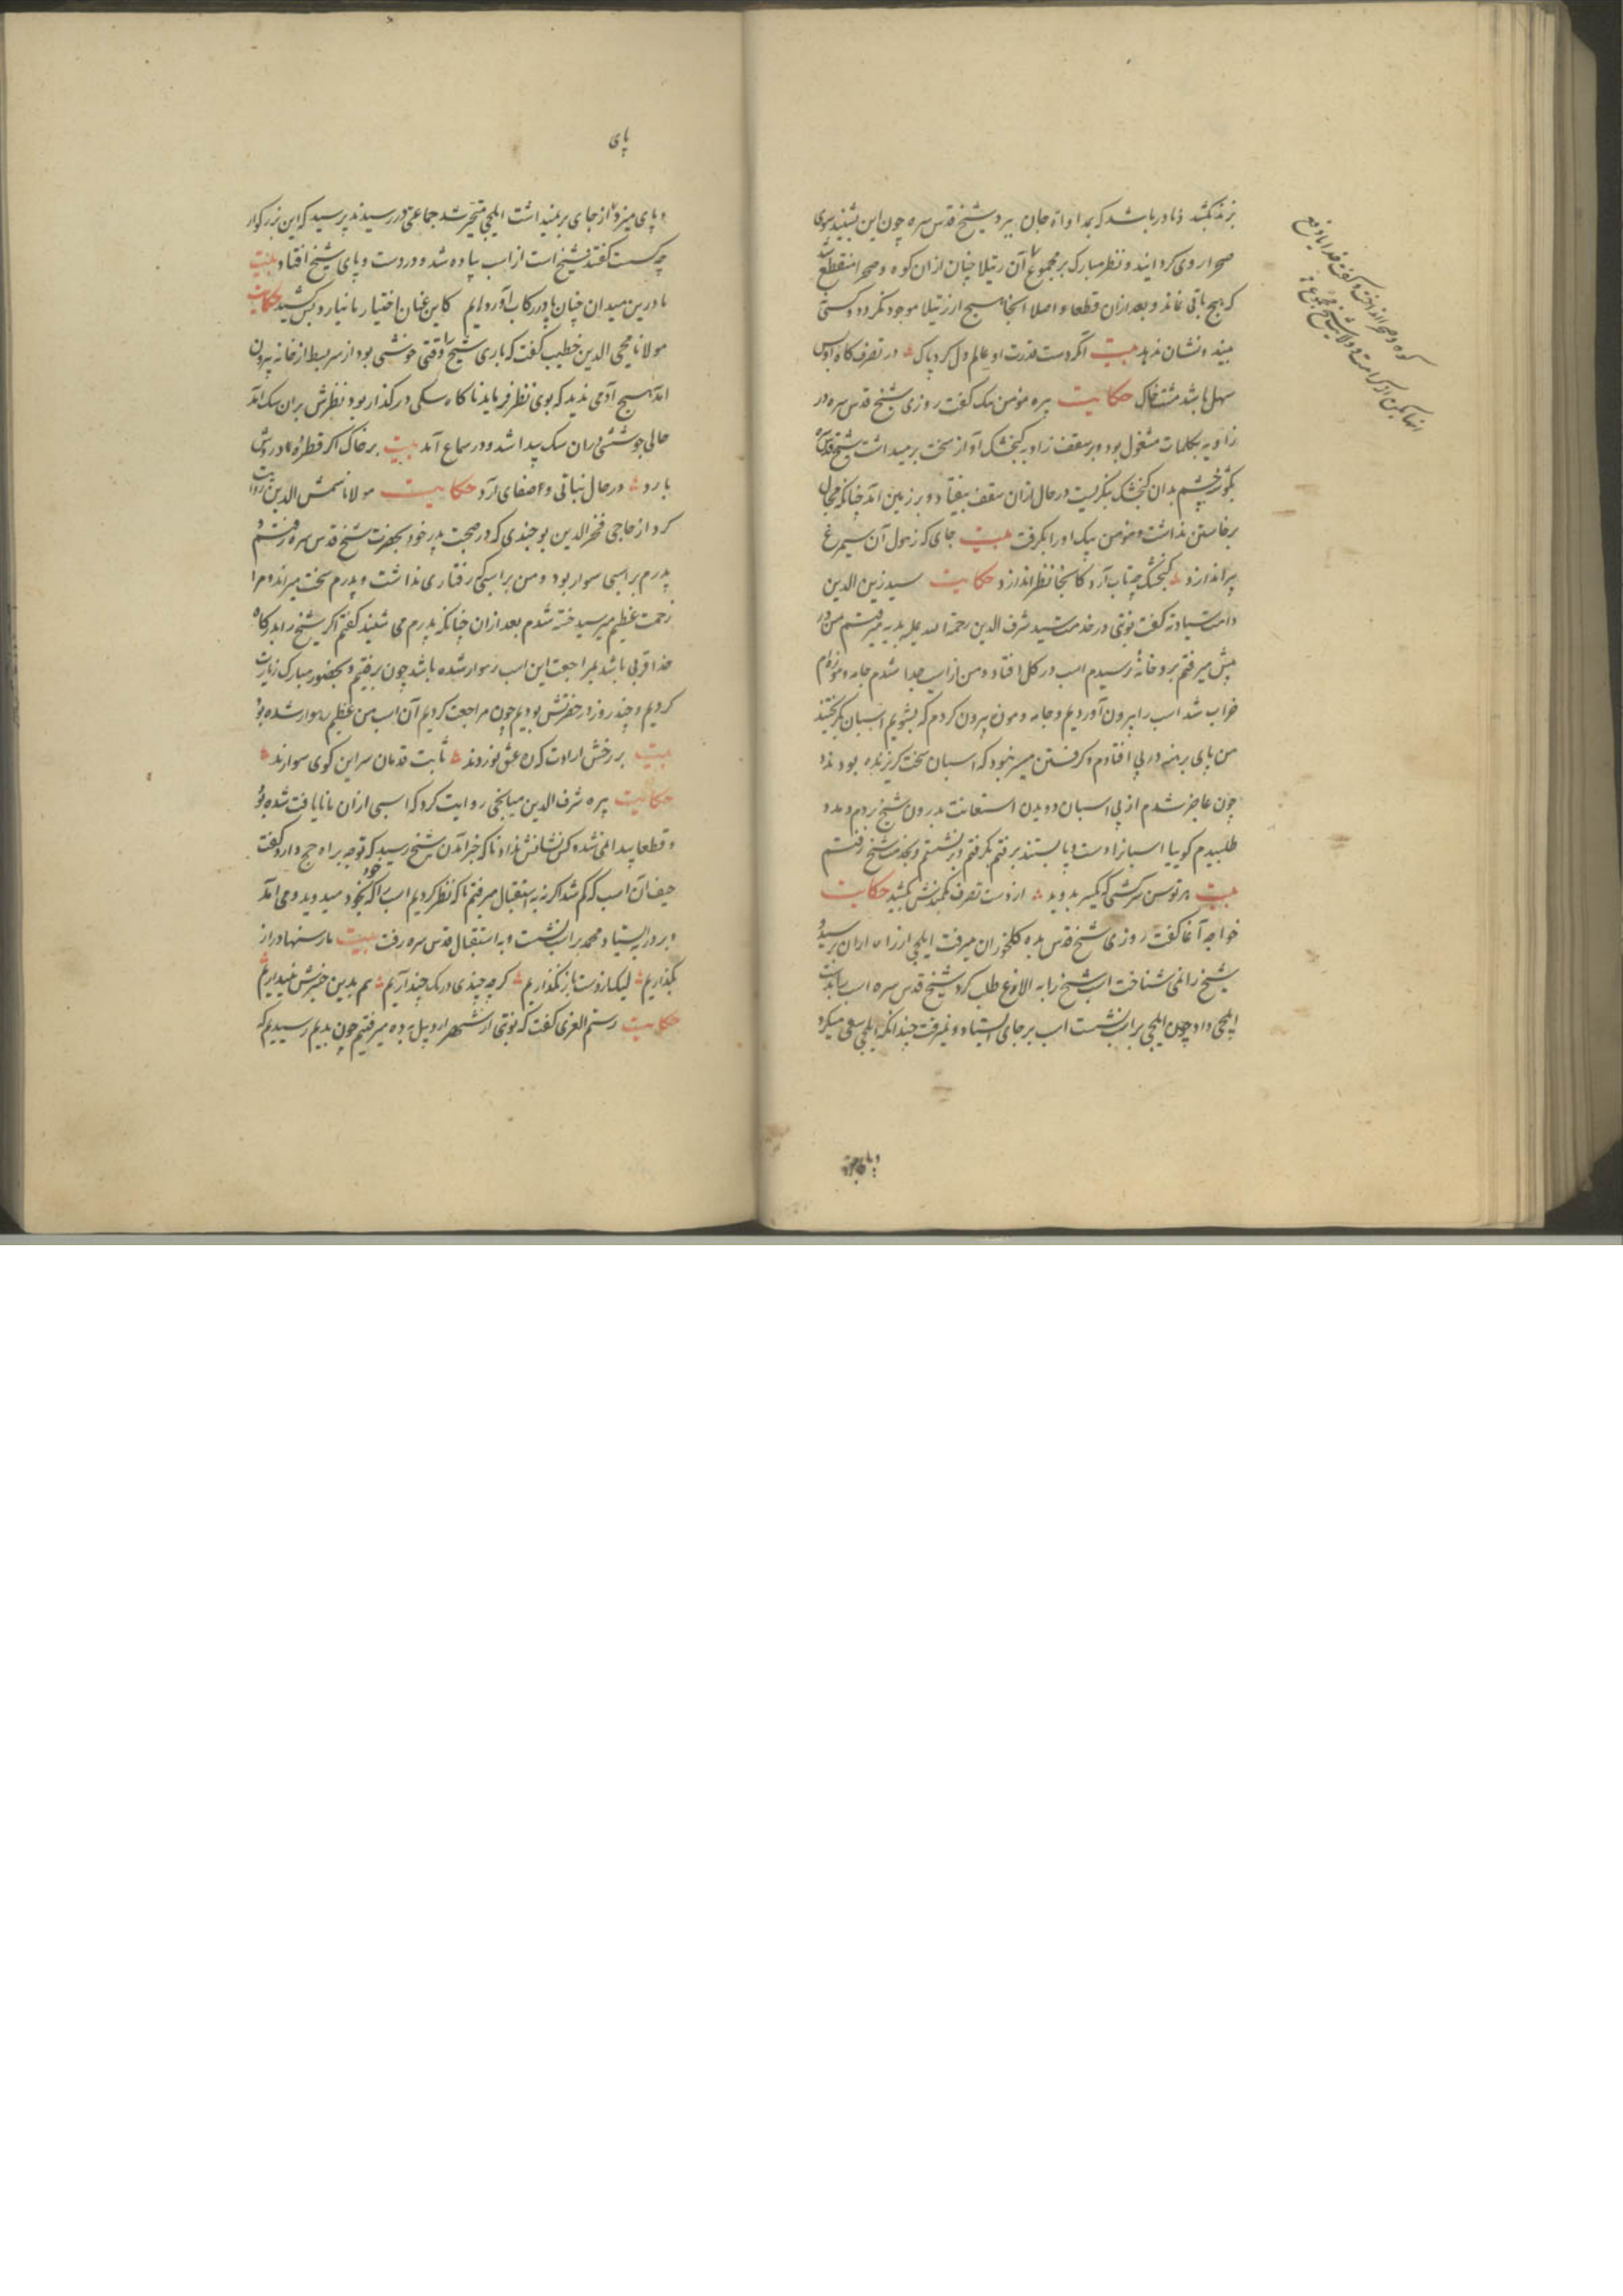 بزند بکشد و نادر باشد که بمداواة جان ببرد شیخ قدس سره چون این بشنید سوی
صحرا روی کردانید و نظر مبارک بر مجموع آن رتیلا چنان ازان کوه و صحرا منقطع شد
که هیچ باقی نماند و بعد ازان قطعا و اصلا آنجا هیچ از رتیلا موجود نکردد و کسی
نبیند و نشان ندهد بیت اگر دست قدرت او عالم دل کرد پاک در تصرف کاه اوس
سهل باشد مشت خاک حکایت پیره مؤمن بیک گفت روزی شیخ قدس سره در
زاویه بکلمات مشغول بود و بر سقف زاویه کنجشک آواز سخت برمیداشت شیخ قدس سره
بگوشه چشم بدان کنجشک بنگریست در حال ازان سقف بیفتاد و بر زمین آمد چنانکه مجال
برخاستن نداشت و مؤمن بیک او را بگرفت بیت جای که ز هول آن سیمرغ
پر اندازد کنجشک چه تاب آرد کانجا نظر اندازد حکایت سید زین الدین
دامت سیادته گفت نوبتی در خدمت سید شرف الدین رحمة الله علیه بدیه میرفتم من در
پیش میرفتم برودخانه رسیدم اسب در کل افتاد و من از اسب جدا شدم جامه و موزه‌ام
خراب شد اسب را بیرون آوردیم و جامه و موزه بیرون کردم که بشویم اسبان بگریختند
من پای برهنه در پی افتادم و گرفتن میسر نبود که اسبان سخت گریزنده بودند
چون عاجز شدم از پی اسبان دویدن استعانت بدرون شیخ بردم و مدد
طلبیدم گوییا اسبانرا دست و پا بستند برفتم بگرفتم و برنشستم و بخدمت شیخ رفتم
بیت هر توسن سرکشی که یکسر بدوید از دست تصرف بکمندش بکشید حکایت
خواجه آغا گفت روزی شیخ قدس سره بده کلخوران میرفت ایلچی از راه اران برسید و
شیخ را نمی شناخت اسب شیخ را به الاوغ طلب کرد شیخ قدس سره اسب را بدست
ایلچی داد چون ایلچی بر اسب نشست اسب بر جای ایستاد و نمیرفت چندانکه ایلچی سعی میکرد
پای
و پای میزد از جای برنمیداشت ایلچی متحیر شد جماعتی در رسیدند پرسید که این بزرکوار
چه کسست گفتند شیخ است از اسب پیاده شد و در دست و پای شیخ افتاد بیت
ما درین میدان چنان پا در رکاب آورده ایم کاین عنان اختیار ما نیارد کس کشید حکایت
مولانا محیی الدین خطیب گفت که باری شیخ را وقتی خوشی بود از سر بسط از خانه بیرون
آمد هیچ آدمی ندید که بوی نظر فرماید ناگاه سکی در گذار بود نظرش بران سک آمد
حالی جوششی دران سک پیدا شد و در سماع آمد بیت بر خاک اگر قطره از دردش
بارد در حال نباتی و صفای آرد حکایت مولانا شمس الدین روایت
کرد از حاجی فخر الدین بوجندی که در صحبت پدر خود بحضرت شیخ قدس سره رفتم و
پدرم بر اسبی سوار بود و من بر اسبی که رفتاری نداشت و پدرم سخت میراند و مرا
زحمت عظیم میرسید خسته شدم بعد ازان چنانکه پدرم می شنید گفتم اگر شیخ را بدرکاه
خدا قربی باشد بمراجعت این اسب رهوار شده باشد چون برفتیم و بحضور مبارک زیارت
کردیم و چند روز در حضرتش بودیم چون مراجعت کردیم آن اسب من عظیم رهوار شده بود
بیت بر رخش ارادت که ره عشق نوردند ثابت قدمان سر این کوی سوارند
حکایت پیره شرف الدین میانجی روایت کرد که اسبی ازان ما نایافت شده بود
و قطعا پیدا نمی شد و کس نشانش نداد ناگه خبر آمدن شیخ رسید که توجه براه حج دارد گفت
حیف آن اسب که گم شد اگرنه به استقبال میرفتم ناگه نظر کردیم اسب را که بخود میدوید و می آمد
و بر در بایستاد محمد بر اسب نشست و به استقبال قدس سره رفت بیت
بگذاریم لیک از دست باز نگذاریم گرچه چندی درنک چند آریم هم بدین خیزش نپنداریم
حکایت رستم الغزی گفت که نوبتی از شهر اردبیل به ده میرفتیم چون بدیم رسیدیم که